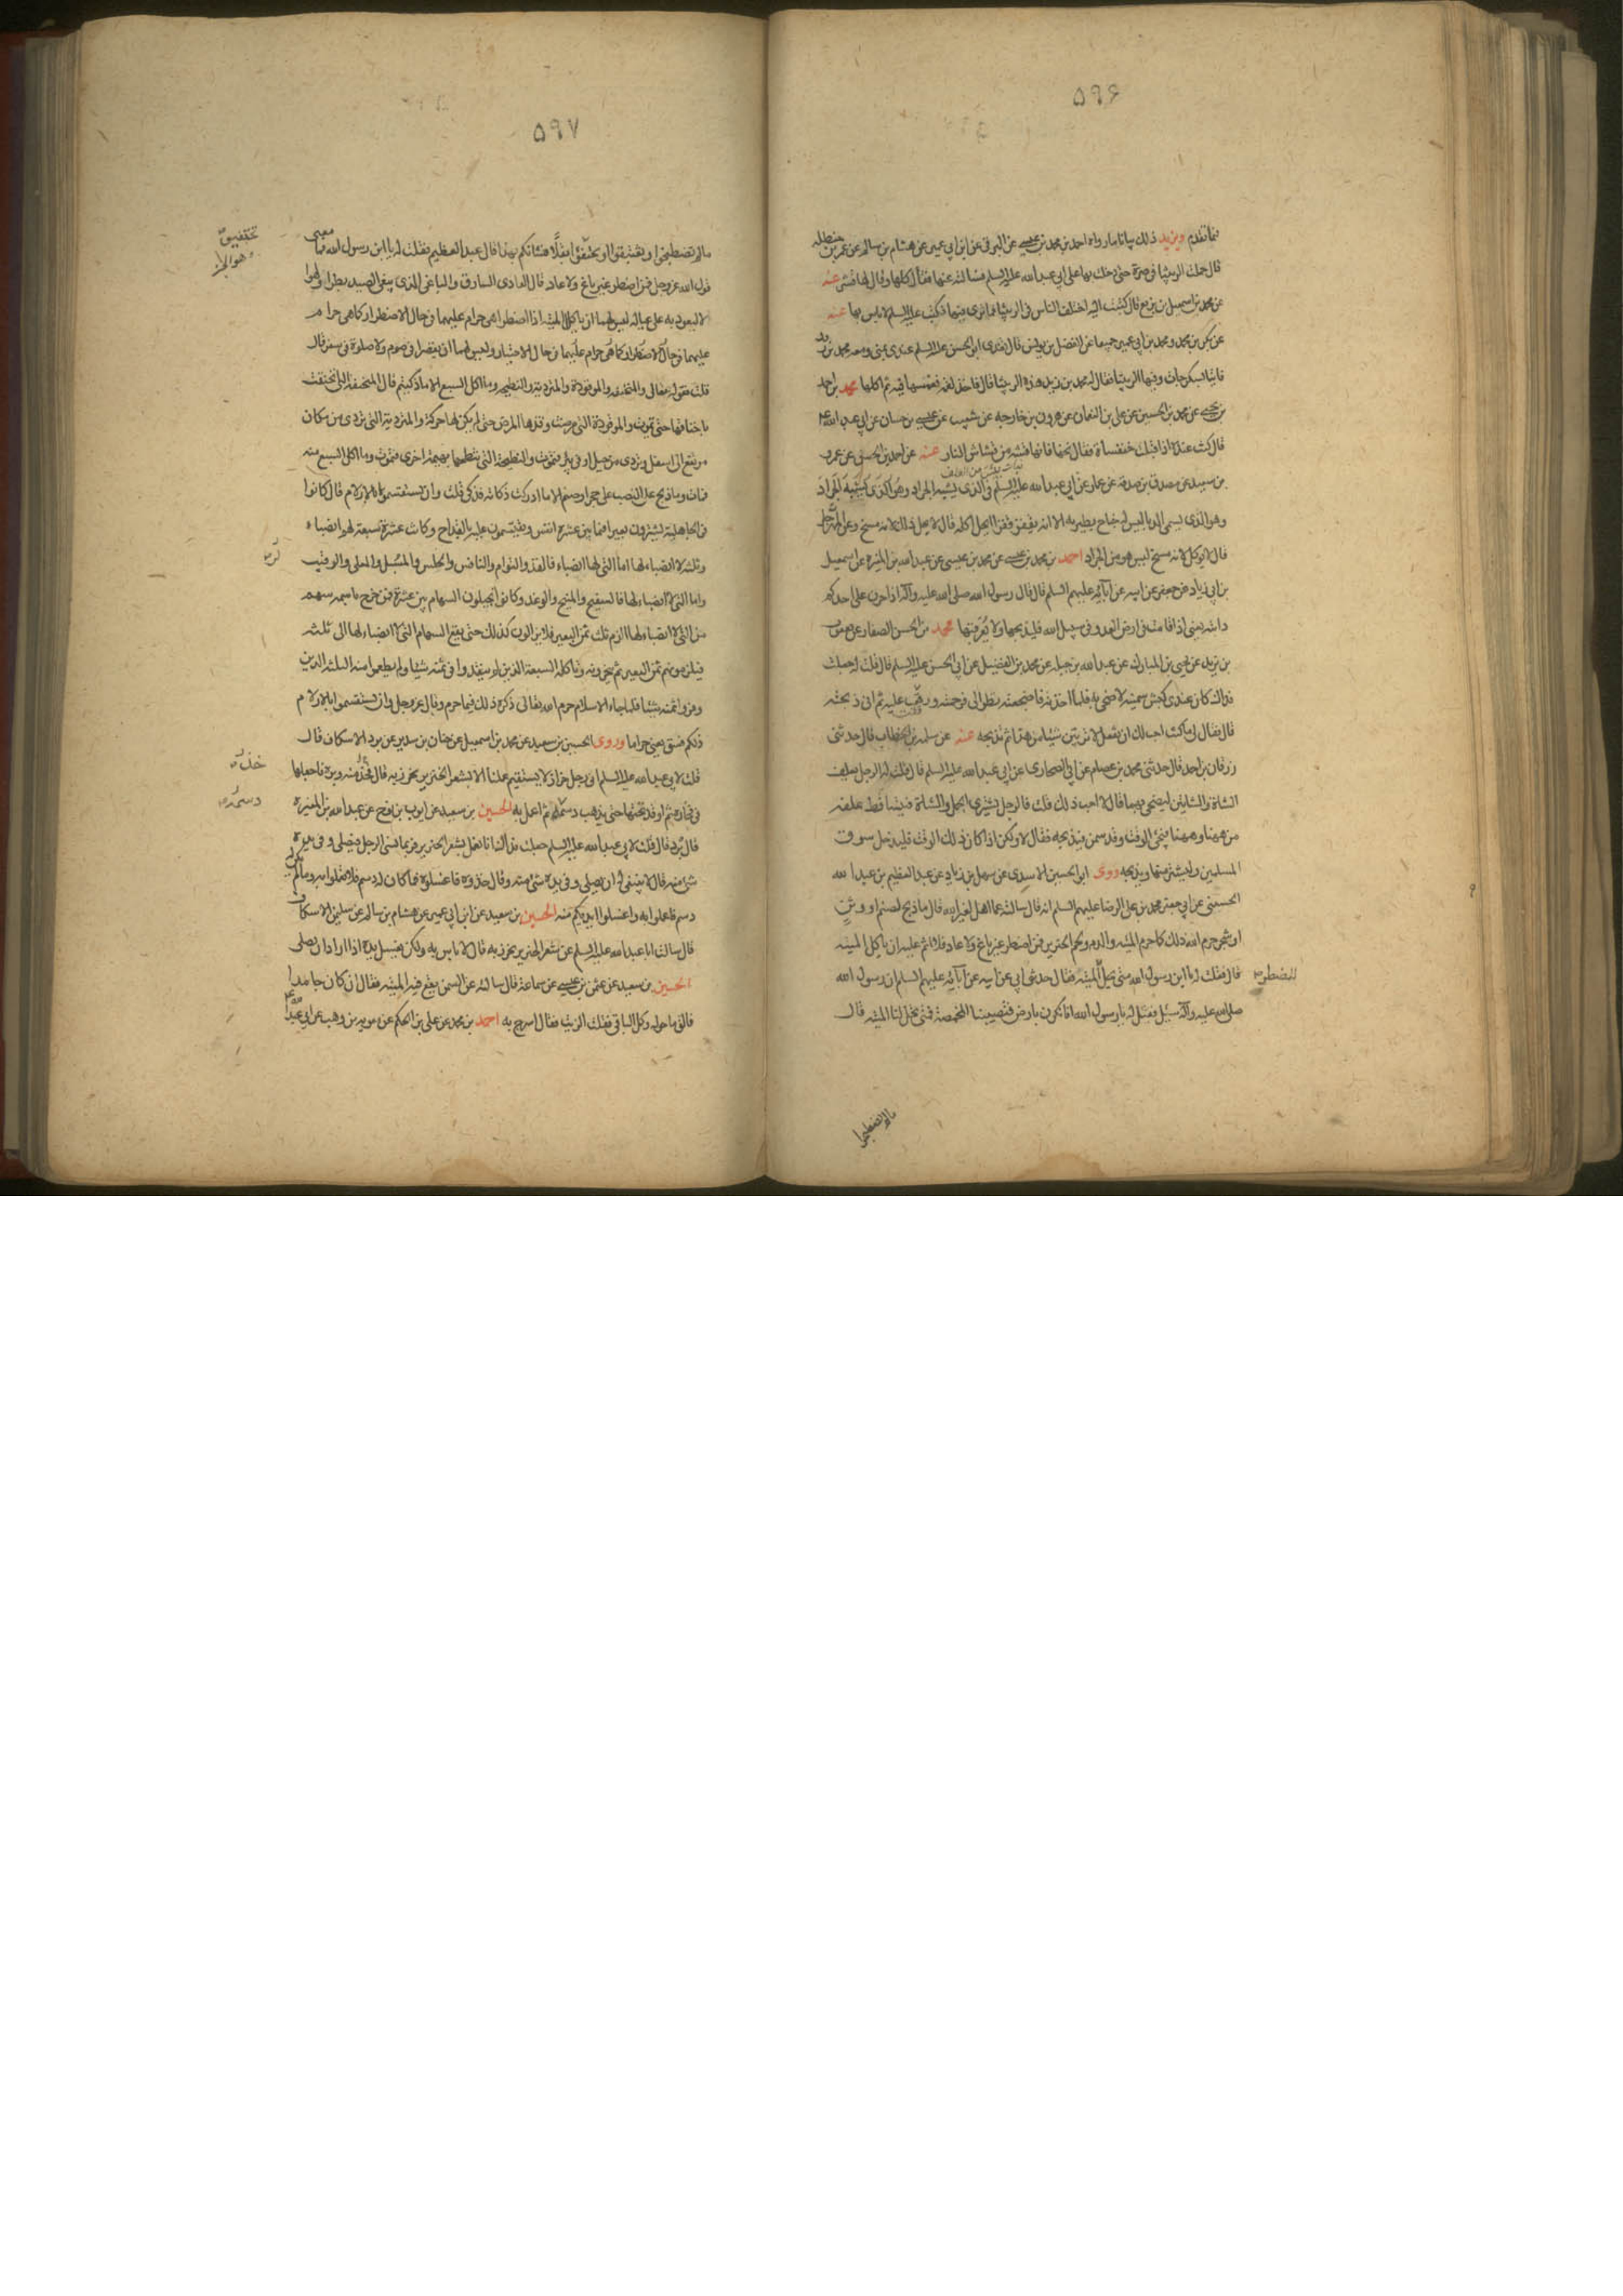 ۵۹۶
فيما تقدم ويزيد ذلك بيانا ما رواه احمد بن محمد بن عيسى عن البرقي عن ابن ابي عمير عن هشام بن سالم عن عمر بن حنظله
قال حملت الربيثا في صرة حتى دخلت بها على ابي عبد الله عليه السلم فسالته عنها فقال كلها وقال لها قشر عنه
عن محمد بن اسمعيل بن بزيع قال كتبت اليه اختلف الناس في الربيثا فما تامرني فيها فكتب عليه السلم لا باس بها عنه
عن بكر بن محمد ومحمد بن ابي عمير جميعا عن الفضل بن يونس قال تغدى ابو الحسن عليه السلم عندي بمنى ومعه محمد بن زيد
فاتيا بسكرجات وفيها الربيثا فقال له محمد بن زيد هذه الربيثا قال فاخذ لقمة فغمسها فيه ثم اكلها محمد بن احمد
بن يحيى عن محمد بن الحسين عن علي بن النعمان عن هرون بن خارجه عن شعيب عن عيسى بن حسان عن ابي عبد الله ع
قال كنت عنده اذ اقبلت خنفساة فقال نحها فانها قشة من قشاش النار عنه عن احمد بن الحسن عن عمرو
بن سعيد عن مصدق بن صدقه عن عمار عن ابي عبد الله عليه السلم في الذي يشبه الجراد وهو الذي
وهو الذي يسمى الدبا ليس له جناح يطير به الا انه يقفز قفزا ايحل اكله قال لا يحل ذلك لانه مسخ وعن المهرجل
قال لا يوكل لانه مسخ ليس هو من الجراد احمد بن محمد بن عيسى عن محمد بن يحيى عن عبد الله بن المغيره عن اسمعيل
بن ابي زياد عن جعفر عن ابيه عن آبائه عليهم السلم قال قال رسول الله صلى الله عليه وآله اذا حرن على احدكم
دابته يعني اذا قامت في ارض العدو في سبيل الله فليذبحها ولا يعرقبها محمد بن الحسن الصفار عن يعقوب
بن يزيد عن يحيى بن المبارك عن عبد الله بن جبله عن محمد بن الفضيل عن ابي الحسن عليه السلم قال قلت له جعلت
فداك كان عندي كبش سمينه لاضحي به فلما اخذته فاضجعته نظر الى فرحمته ورققت عليه ثم اني ذبحته
قال فقال لي ما كنت احب لك ان تفعل لا تربين شيئا من هذا ثم تذبحه عنه عن سلمه بن الخطاب قال حدثني
زرقان بن احمد قال حدثني محمد بن عصام عن ابي الصحاري عن ابي عبد الله عليه السلم قال قلت له الرجل يعلف
الشاة والشاتين ليضحي بهما قال لا احب ذلك قلت فالرجل يشتري الجمل والشاة فيتساقط علفه
من هيهنا وهيهنا فيجئ الوقت وقد سمن فيذبحه فقال لا ولكن اذا كان ذلك الوقت فليدخل سوق
المسلمين وليشتر منها ويذبحه وروى ابو الحسين الاسدي عن سهل بن زياد عن عبد العظيم بن عبد الله
الحسني عن ابي جعفر محمد بن علي الرضا عليهم السلم انه قال سالته عما اهل لغير الله قال ما ذبح لصنم او وثن
او شجر حرم الله ذلك كما حرم الميته والدم ولحم الخنزير فمن اضطر غير باغ ولا عاد فلا اثم عليه ان ياكل الميته
قال فقلت له يا ابن رسول الله متى تحل للمضطر الميته فقال حدثني ابي عن ابيه عن آبائه عليهم السلم ان رسول الله
صلى الله عليه وآله سئل فقيل له يا رسول الله انا نكون بارض فتصيبنا المخمصة فمتى تحل لنا الميته قال
ما لم تصطبحوا
۵۹۷
ما لم تصطبحوا او تغتبقوا او تحتفئوا بقلا فشانكم بهذا قال عبد العظيم فقلت له يا ابن رسول الله فما معنى
قول الله عز وجل فمن اضطر غير باغ ولا عاد قال العادي السارق والباغي الذي يبغي الصيد بطرا ولهوا
لا ليعود به على عياله ليس لهما ان ياكلا الميته اذا اضطرا هي حرام عليهما في حال الاضطرار كما هي حرام
عليهما في حال الاختيار وليس لهما ان يقصرا في صوم ولا صلوة في سفر قال
قلت فقوله تعالى والمنخنقه والموقوذة والمترديه والنطيحه وما اكل السبع الا ما ذكيتم قال المنخنقة التي انخنقت
باخناقها حتى تموت والموقوذة التي مرضت وقذها المرض حتى لم يكن لها حركة والمتردية التي تتردى من مكان
مرتفع الى اسفل او تردى من جبل او في بئر فتموت والنطيحة التي تنطحها بهيمة اخرى فتموت وما اكل السبع منه
فمات وما ذبح على النصب على حجر او صنم الا ما ادركت ذكاته فذكي قلت وان تستقسموا بالازلام قال كانوا
في الجاهلية يشترون بعيرا فيما بين عشرة انفس ويستقسمون عليه بالقداح وكانت عشرة سبعة لهم انصباء
وثلثه لا انصباء لها اما التي لها انصباء فالفذ والتوام والنافس والحلس والمسبل والمعلى والرقيب
واما التي لا انصباء لها فالسفيح والمنيح والوغد وكانوا يجيلون السهام بين عشرة فمن خرج باسمه سهم
من التي لا انصباء لها الزم ثلث ثمن البعير فلا يزالون كذلك حتى يقع السهام التي لا انصباء لها الى ثلثه
فيلزمونهم ثمن البعير ثم ينحرونه وياكله السبعة الذين لم ينقدوا في ثمنه شيئا ولم يطعموا منه الثلثه الذين
وفروا ثمنه شيئا فلما جاء الاسلام حرم الله تعالى ذكره ذلك فيما حرم وقال عز وجل وان تستقسموا بالازلام
ذلكم فسق يعني حراما وروى الحسين بن سعيد عن محمد بن اسمعيل عن حنان بن سدير عن برد الاسكاف قال
قلت لابي عبد الله عليه السلم اني رجل خراز لا يستقيم عملنا الا بشعر الخنزير نخرز به قال خذ منه وبرة فاجعلها
في فخارة ثم اوقد تحتها حتى يذهب دسمه ثم اعمل به الحسين بن سعيد عن ايوب بن نوح عن عبد الله بن المغيرة
قال برد قال قلت لابي عبد الله عليه السلم جعلت فداك انا نعمل بشعر الخنزير فربما نسي الرجل فيصلي وفي يده
شئ منه قال لا ينبغي له ان يصلي وفي يده شئ منه وقال خذوه فاغسلوه فما كان له دسم فلا تعملوا به وما لم يكن له
دسم فاعملوا به واغسلوا ايديكم منه الحسين بن سعيد عن ابن ابي عمير عن هشام بن سالم عن سليمن الاسكاف
قال سالت ابا عبد الله عليه السلم عن شعر الخنزير يخرز به قال لا باس به ولكن يغسل يده اذا اراد ان يصلي
الحسين بن سعيد عن عثمن بن عيسى عن سماعة قال سالته عن السمن يقع فيه الميته فقال ان كان جامدا
فالق ما حوله وكل الباقي فقلت الزيت فقال اسرج به احمد بن محمد عن علي بن الحكم عن معويه بن وهب عن ابي عبد الله